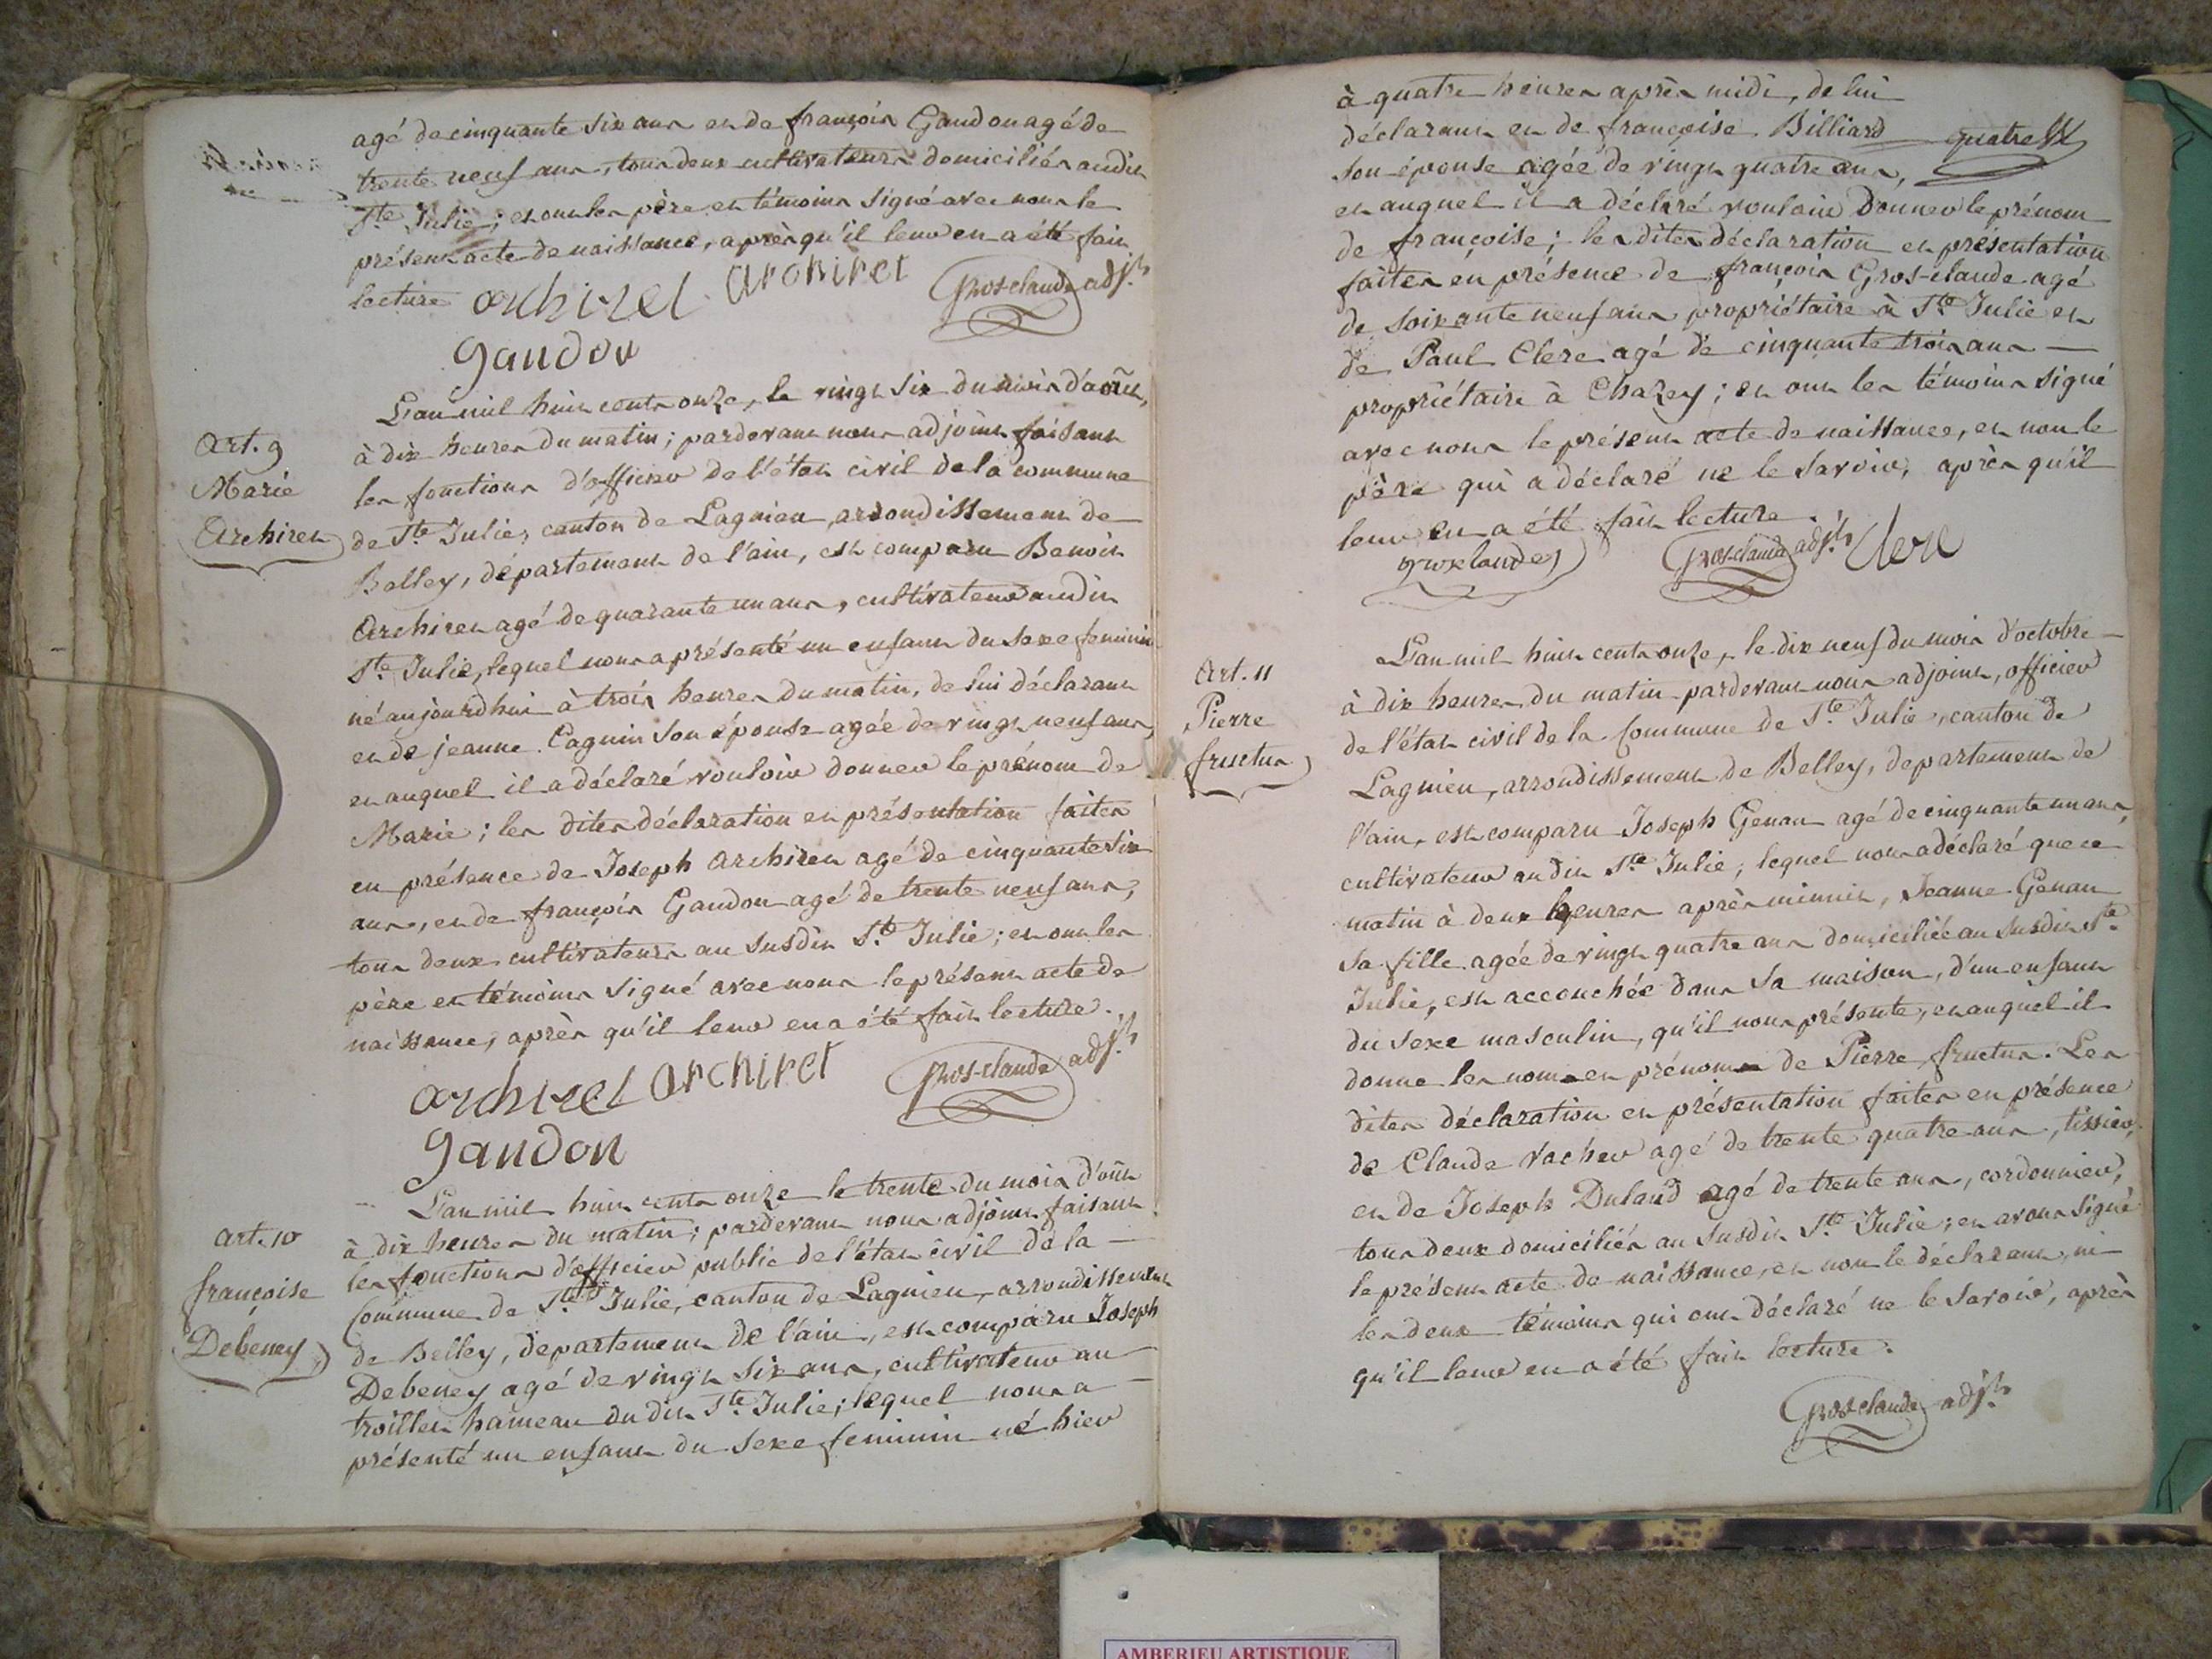 agé de cinquante six ans et de françois Gandon agé de
trente neuf ans, tous deux cultivateurs domiciliés audit
Ste Julie; et ont les père et témoins signé avec nous le
présent acte de naissance, après qu'il leur en a été fait
lecture archiret archiret Gros-claude adjt
gandon
L'an mil huit cents onze, le vingt six du mois d'août,
Art. 9
Marie
Archiret
à dix heures du matin; pardevant nous adjoint faisant
les fonctions d'officier de l'état civil de la commune
de Ste Julie, canton de Lagnieu, arrondissement de
Belley, département de l'ain, est comparu Benoit
Archiret agé de quarante un ans, cultivateur audit
Ste Julie, lequel nous a présenté un enfant du sexe feminin
né aujourdhui à trois heures du matin, de lui déclarant
et de jeanne Cagnin son épouse agée de vingt neuf ans,
et auquel il a déclaré vouloir donner le prénom de
Marie; les dites déclaration et présentation faites
en présence de Joseph archiret agé de cinquante six
ans, et de françois Gandon agé de trente neuf ans,
tous deux cultivateurs au susdit Ste Julie; et ont les
père et témoins signé avec nous le présent acte de
naissance, après qu'il leur en a été fait lecture.
archiret archiret Gros-claude adjt
gandon
L'an mil huit cents onze le trente du mois d'oût
Art. 10
françoise
Debeney
à dix heures du matin; pardevant nous adjoint faisant
les fonctions d'officier public de l'état civil de la
Commune de Ste Julie, canton de Lagnieu, arrondissement
de Belley, departement de l'ain, est comparu Joseph
Debeney agé de vingt six ans, cultivateur au
troilles hameau du dit Ste Julie; lequel nous a
présenté un enfant du sexe feminin né hier
à quatre heures après midi, de lui
déclarant et de françoise Billiard quatre
son épouse agée de vingt quatre ans,
et auquel il a déclaré vouloir donner le prénom
de françoise; les dites déclaration et présentation
faites en présence de françois Gros-claude agé
de soixante neuf ans propriétaire à Ste Julie et
de Paul Clerc agé de cinquante trois ans
propriétaire à Chazey; et ont les témoins signé
avec nous le présent acte de naissance, et non le
père qui a déclaré ne le savoir, après qu'il
leur en a été fait lecture.
groxlande Gros-claude adjt Clerc
L'an mil huit cents onze, le dix neuf du mois d'octobre
Art. 11
Pierre
fructus
à dix heures du matin pardevant nous adjoint, officier
de l'état civil de la Commune de Ste Julie, canton de
Lagnieu, arrondissement de Belley, departement de
l'ain, est comparu Joseph Genau agé de cinquante un ans,
cultivateur au dit Ste Julie, lequel nous a déclaré que ce
matin à deux heures après minuit, Jeanne Genau
sa fille agée de vingt quatre ans domiciliée au susdit Ste
Julie, est accouchée dans sa maison, d'un enfant
du sexe masculin, qu'il nous présente, et auquel il
donne les noms et prénoms de Pierre fructus. Les
dites déclaration et présentation faites en présence
de Claude Vacher agé de trente quatre ans, tissier,
et de Joseph Duland agé de trente ans, cordonnier,
tous deux domiciliés au susdit Ste Julie; et avons signé
le présent acte de naissance, et non le déclarant, ni
les deux témoins qui ont déclaré ne le savoir, après
qu'il leur en a été fait lecture.
Gros-claude adjt
AMBERIEU ARTISTIQUE